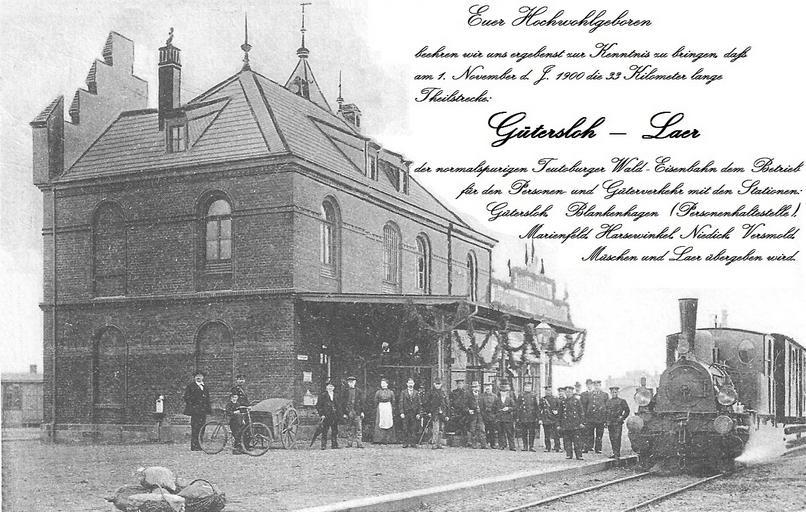 Euer Hochwohlgeboren
beehren wir uns ergebenst zur Kenntnis zu bringen, daß
am 1. November d. J. 1900 die 33 Kilometer lange
Theilstrecke:
Gütersloh – Laer
der normalspurigen Teutoburger Wald-Eisenbahn dem Betrieb
für den Personen- und Güterverkehr mit den Stationen:
Gütersloh, Blankenhagen (Personenhaltestelle),
Marienfeld, Harsewinkel, Niedick, Versmold,
Müschen und Laer übergeben wird.